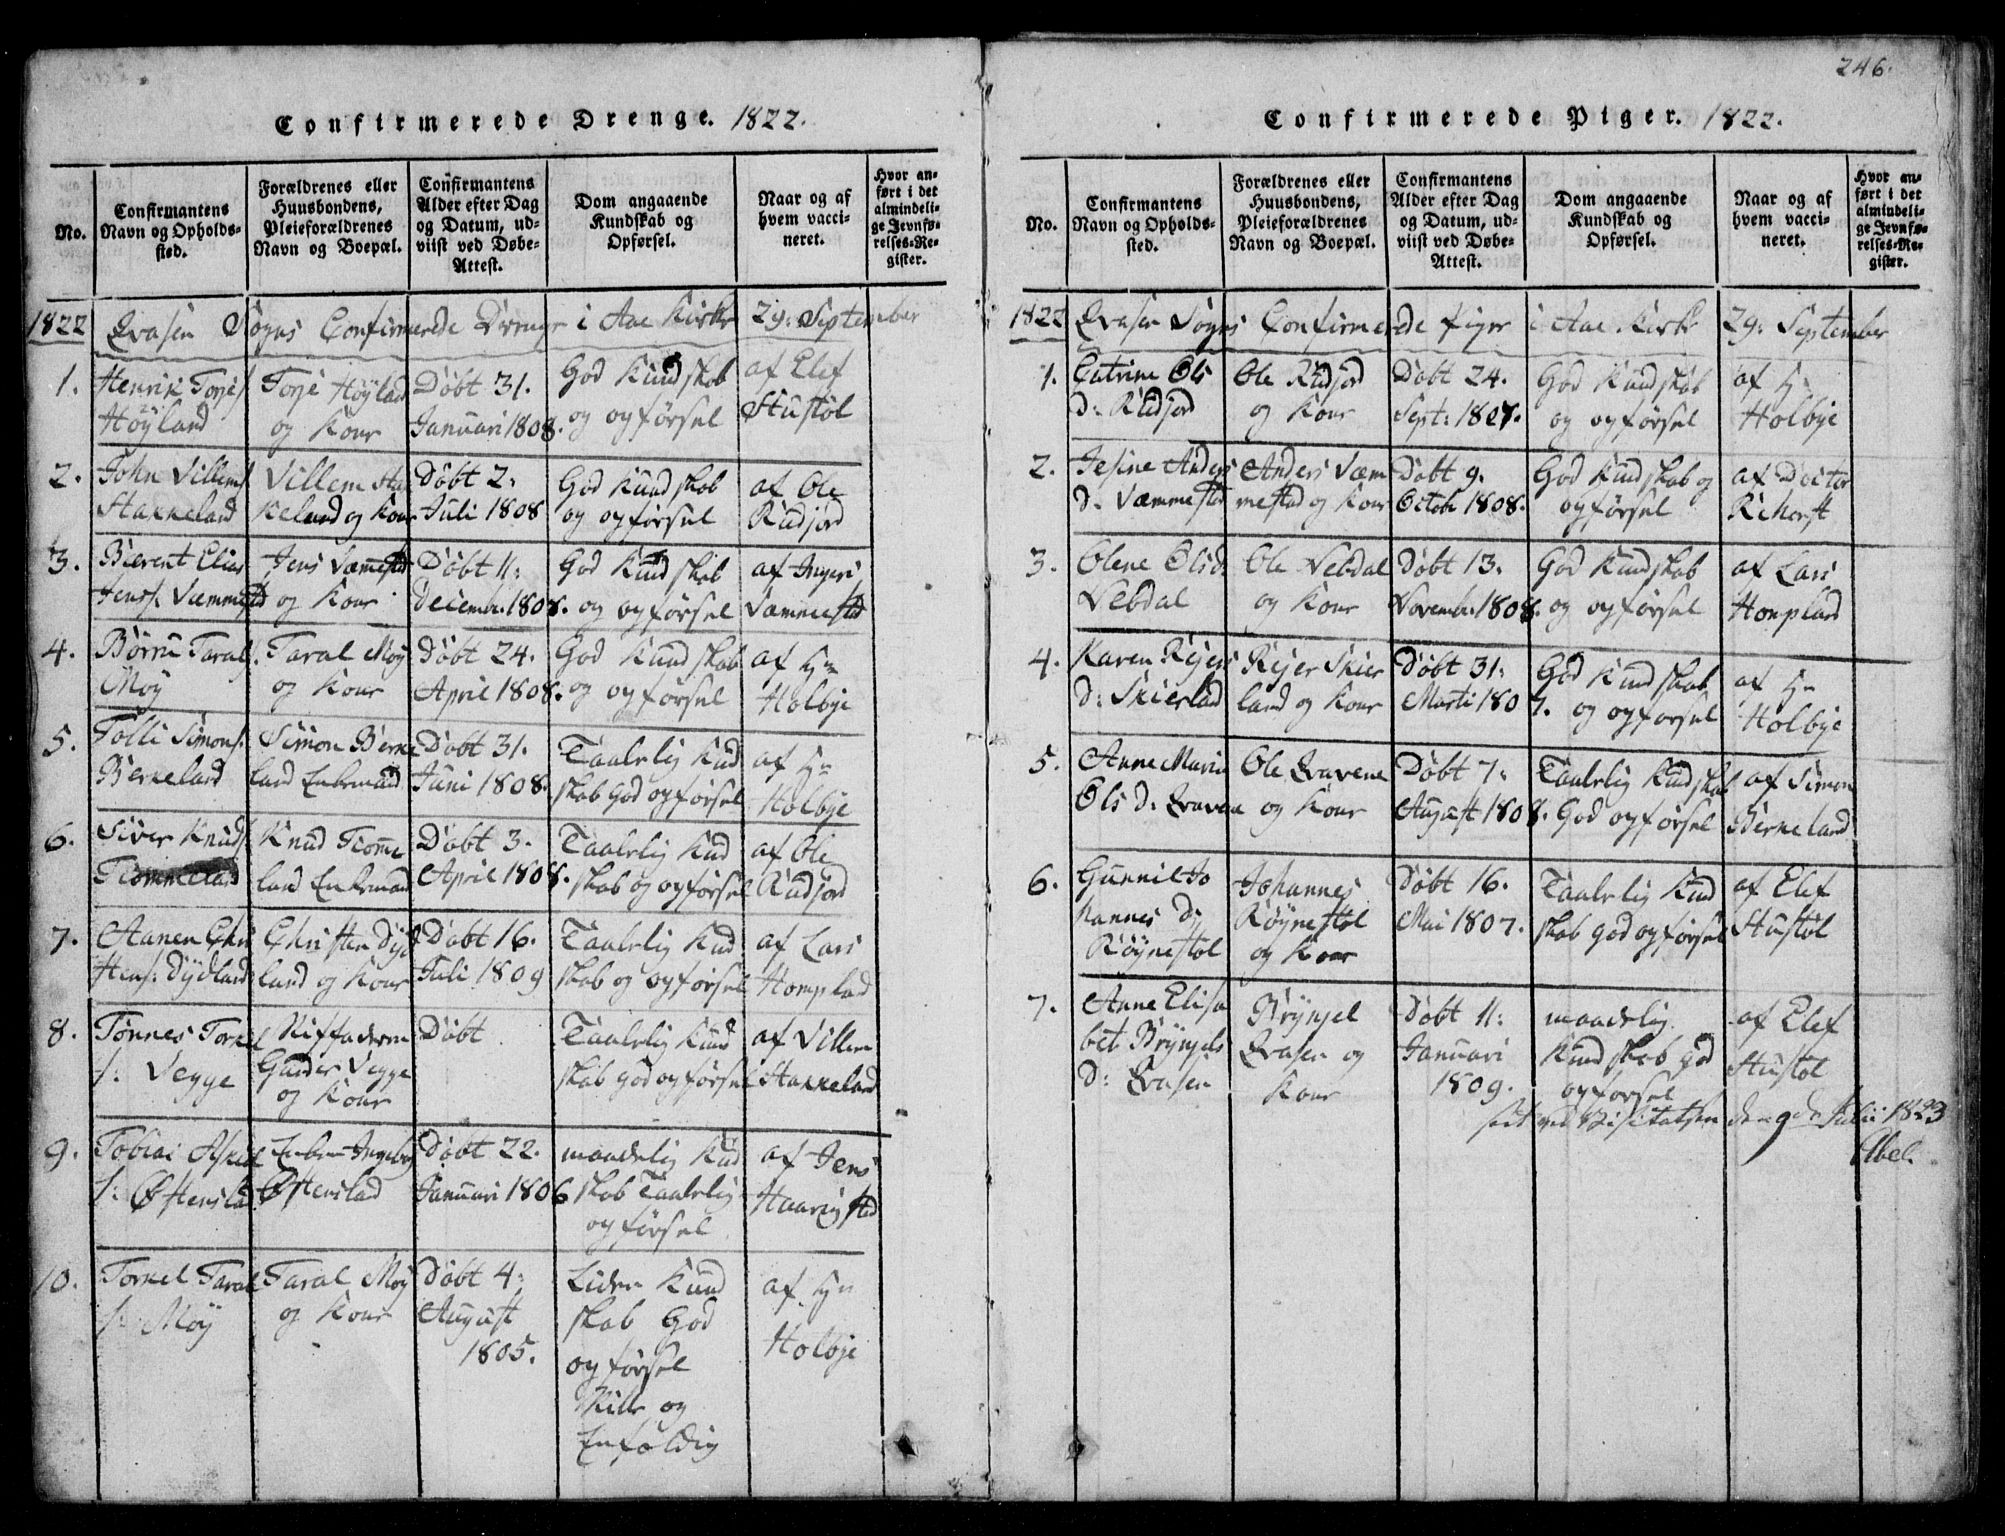 Confirmerede Drenge. 1822.
No.
Confirmantens
Navn og Opholds-
sted.
Forældrenes eller
Huusbondens,
Pleieforældrenes
Navn og Boepæl.
Confirmantens
Alder efter Dag
og Datum, ud-
viist ved Døbe-
Attest.
Dom angaaende
Kundskab og
Opførsel.
Naar og af
hvem vacci-
neret.
Hvor an-
ført i det
almindeli-
ge Jevnfø-
relses-Re-
gister.
1822 Qvasen Sogns Confirmerede Drenge i Aae Kirke 29: September
1.
Henrik Torjes/
Høÿland
Torje Høÿlad
og Kone
Døbt 31.
Januari 1808.
God Kundskab
og opførsel
af Elef
Stustøl
2.
John Villems/
Stakkeland
Villem Stak
keland og Kone
Døbt 2:
Juli 1808
God Kundskab
og opførsel
af Ole
Rudjord
3.
Bærent Elias
Jens/: Væmmestd
Jens Væmestad
og Kone
Døbt 11:
Decembr. 1808.
God Kundskab
og opførsel
af Inger
Væmmestd
4.
Børru Tarals/.
Moÿ
Taral Moÿ
og Kone
Døbt 24.
April 1808.
God Kundskab
og opførsel
af Hr
Holbye
5.
Tolli Simons/.
Berkeland
Simon Berke
land Enkemand
Døbt 31.
Juni 1808.
Taalelig Kud
skab God opførsel
af Hr
Holbye
6.
Siver Knuds/
Fiommeland
Knud Fiomme
land Enkemand
Døbt 3.
April 1808.
Taalelig Kud
skab og opførsel
af Ole
Rudjord
7.
Aanen Chri
stens/: Dÿdland
Christen Dÿd
land og Kone
Døbt 16.
Juli 1809
Taalelig Kud
skab og opførsel
af Lars
Homplad
8.
Tønnes Torkel
s/: Vegge
Stiffaderen
Gunder Vegge
og Kone
Døbt
Taalelig Kund
skab god opførsel
af Villem
Stakkeland
9.
Tobias Askel
s/: Østenstad
Enken Ingebor
Østenstad
Døbt 22.
Januari 1806
maadelig Kud
skab Taalelig
opførsel
af Jens
Haarigstad
10.
Torkel Taral
s/: Moÿ
Taral Moÿ
og Kone
Døbt 4:
August
1805.
Liden Kund
skab God
opførsel
Stille og
Enfoldig
af Hr
Holbye
246.
Confirmerede Piger. 1822.
No.
Confirmantens
Navn og Opholds-
sted.
Forældrenes eller
Huusbondens,
Pleieforældrenes
Navn og Boepæl.
Confirmantens
Alder efter Dag
og Datum, ud-
viist ved Døbe-
Attest.
Dom angaaende
Kundskab og
Opførsel.
Naar og af
hvem vacci-
neret.
Hvor an-
ført i det
almindeli-
ge Jevnfø-
relses-Re-
gister.
1822 Qvasen Sogns Confirmerede Piger i Aae Kirke 29: September
1.
Catrine Ols
d: Rudjord
Ole Rudjord
og Kone
Døbt 24.
Sept: 1807.
God Kundskab
og opførsel
af Hr
Holbye
2.
Jesine Anders
d. Væmmestd
Anders Væm
mestad og Kone
Døbt 9.
Octobr 1808.
God Kundskab og
opførsel
af Doctor
Kihorst
3.
Olene Olsd:
Vebdal
Ole Vebdal
og Kone
Døbt 13.
Novembr. 1808.
God Kundskab
og opførsel
af Lars
Homplan
4.
Karen Rejers
d: Skierlad
Rejer Skier
land og Kone
Døbt 31:
Marti 1807.
God Kundskab
og opførsel
af Hr
Holbye
5.
Anne Maria
Ols d: Qvaven
Ole Qvavene
og Kone
Døbt 7:
August 1808.
Taalelig Kundskab
God opførsel
af Simon
Berkeland
6.
Gunnil Jo
hannes D:
Røÿnestøl
Johannes
Røÿnestøl
og Kone
Døbt 16.
Mai 1807.
Taalelig Kund
skab god opførsel
af Elef
Stustøl
7.
Anne Elisa
bet Brÿngels
D: Qvasen
Brÿngel
Qvasen og
Kone
Døbt 11:
Januari
1809.
maadelig
Kundskab God
opførsel
af Elef
Stustøl
seet ved Visitatsen den 9de Julii 1823
Abel.